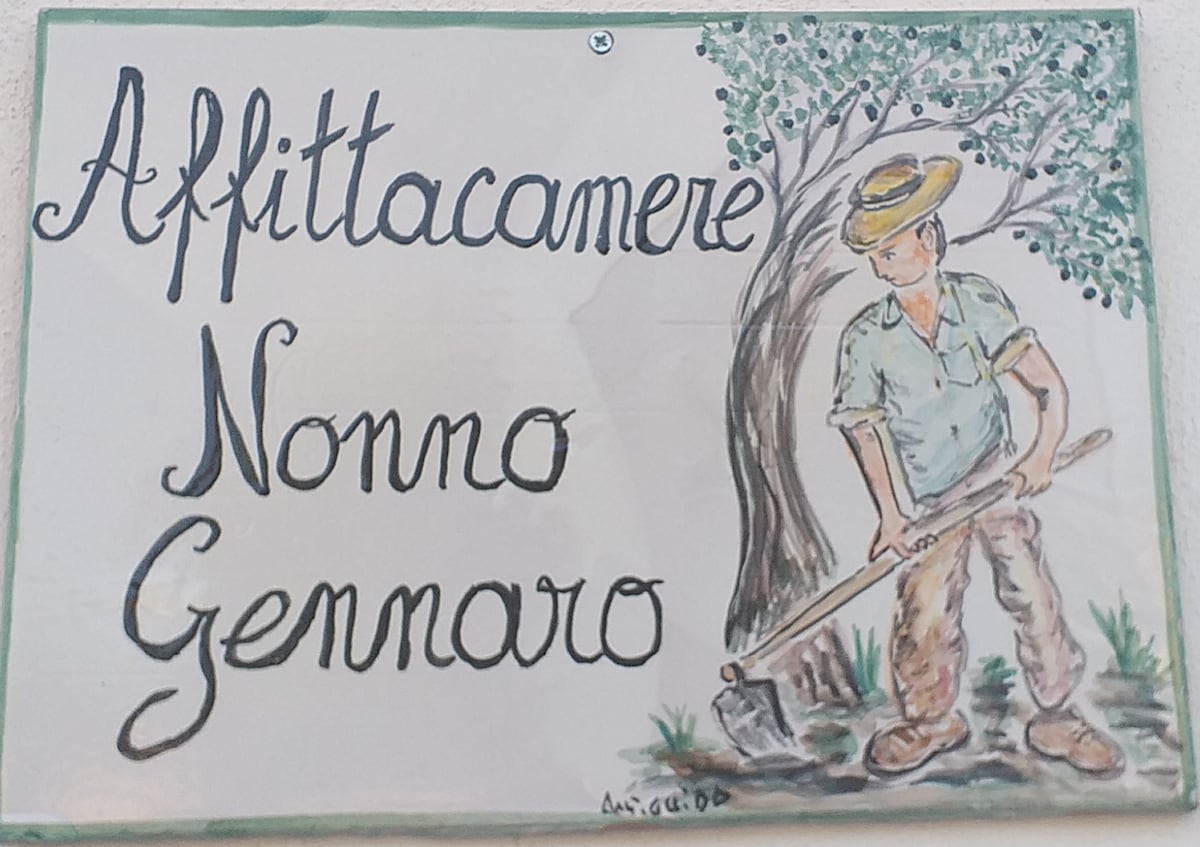 Affittacamere
Nonno
Gennaro